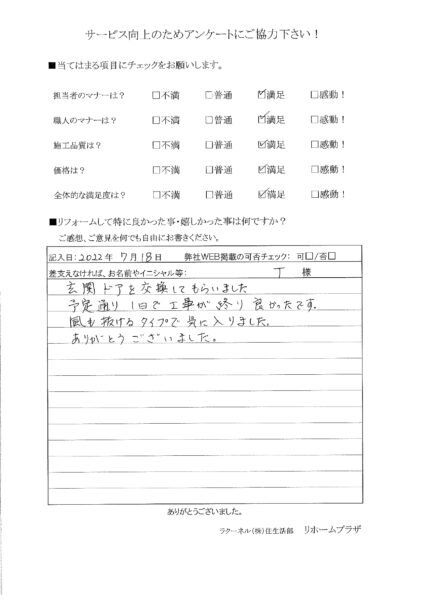 サービス向上のためアンケートにご協力下さい！
■当てはまる項目にチェックをお願いします。
担当者のマナーは？ □不満 □普通 ☑満足 □感動！
職人のマナーは？ □不満 □普通 ☑満足 □感動！
施工品質は？ □不満 □普通 ☑満足 □感動！
価格は？ □不満 □普通 ☑満足 □感動！
全体的な満足度は？ □不満 □普通 ☑満足 □感動！
■リフォームして特に良かった事・嬉しかった事は何ですか？
ご感想、ご意見を何でも自由にお書きください。
記入日：2022年 7月18日 弊社WEB掲載の可否チェック： 可□/否□
差支えなければ、お名前やイニシャル等： T 様
玄関ドアを交換してもらいました
予定通り1日で工事が終り良かったです。
風も抜けるタイプで気に入りました。
ありがとうございました。
ありがとうございました。
ラクーネル（株）住生活部 リホームプラザ